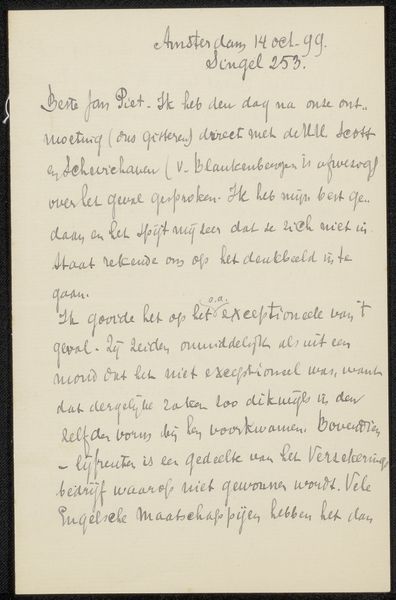 Amsterdam 14 oct. 99.
Singel 253.
Beste Jan Piet. Ik heb den dag na onze ont-
moeting (ons gisteren) direct met de HH. Scott
en Scherichaven (v. Blankenberger is afwezig)
over het geval gesproken. Ik heb mijn best ge-
daan en het spijt mij zeer dat ze zich niet in
staat rekende om op het denkbeeld in te
gaan.
o.a.
Ik gooide het op het exceptioneele van 't
geval. Zij zeiden onmiddelijk als uit een
mond dat het niet exceptioneel was, want
dat dergelijke zaken zoo dikwijls in den
zelfden vorm bij hen voorkwamen. Bovendien
- lijfrenten is een gedeelte van het Verzekerings
bedrijf waarop niet gewonnen wordt. Vele
Engelsche Maatschappijen hebben het dan